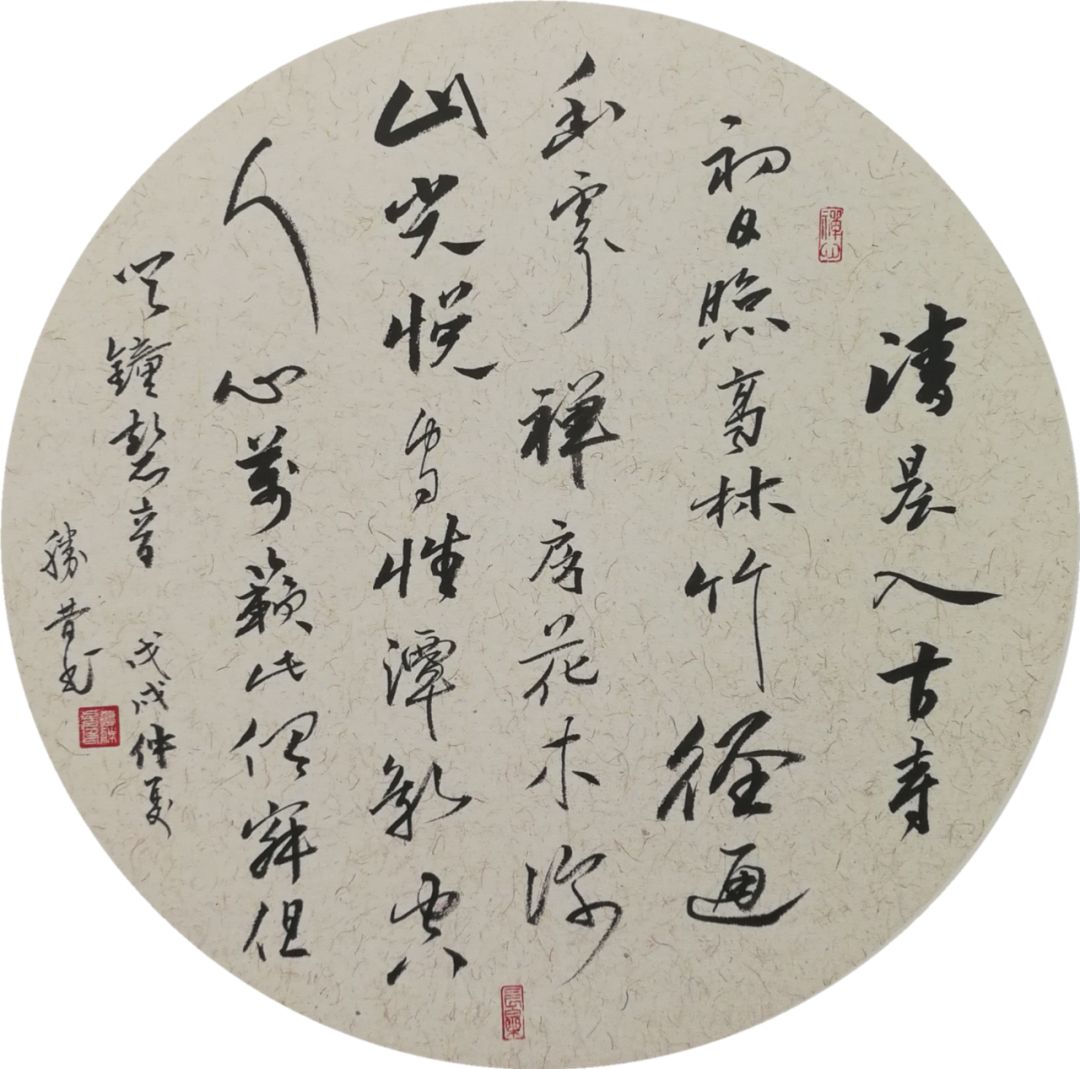 清晨入古寺
初日照高林竹径通
幽處禅房花木深
山光悦鸟性潭影空
人心萬籁此俱寂但
聞鐘磬音 戊戌仲夏
勝昔书